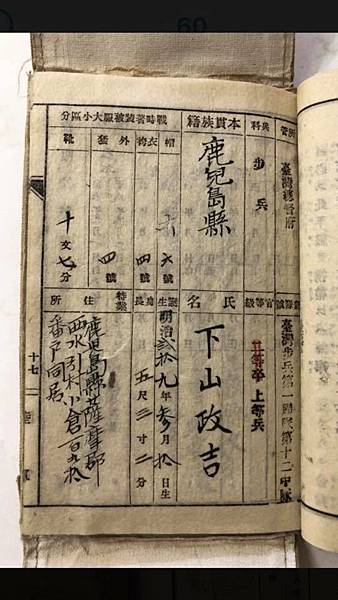 所管
臺灣總督府
臺灣步兵第一聯隊第十二中隊
兵科
步兵
官等級
上等兵
本貫族籍
鹿兒島縣
氏名
下山政吉
戰時著裝被服大小區分
帽
六號
衣袴
四號
外套
四號
靴
十文七分
誕生
明治貳拾九年參月拾日生
身長
五尺三寸二分
特業
住所
鹿兒島縣薩摩郡
番戶同居
十七